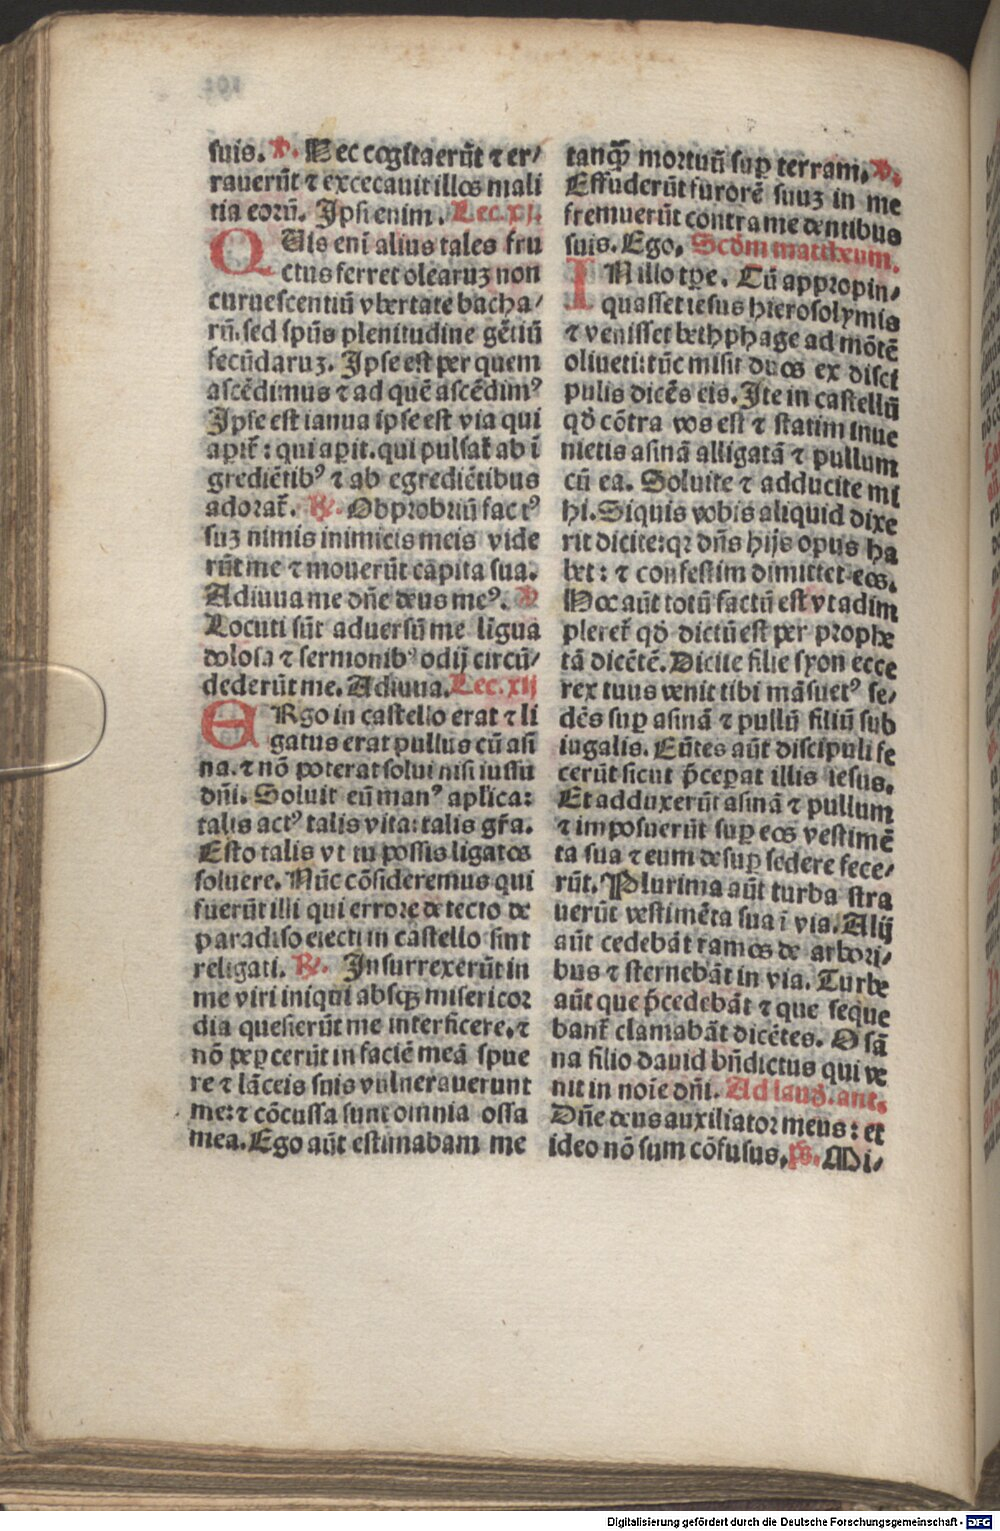 suis. ℣. Hec cogitauerūt ⁊ er/
rauerūt ⁊ excecauit illos mali
tia eorū. Ipsi enim. Lec. xj.
QUis eni̅ alius tales fru
ctus ferret olearuꝫ non
curuescentiū vbertate bacha/
rū. sed sp̄us plenitudine gētiū
fecūdaruꝫ. Ipse est per quem
ascēdimus ⁊ ad quē ascēdimꝰ
Ipse est ianua ipse est via qui
aꝑit᷑: qui aꝑit. qui pulsat᷑ ab ī
grediētibꝰ ⁊ ab egrediētibus
adorat᷑. ℟. Obprobriū factꝰ
suꝫ nimis inimicis meis vide
rūt me ⁊ mouerūt cāpita sua.
Adiuua me dn̄e deus meꝰ. ℣
Locuti sūt aduersū me līgua
dolosa ⁊ sermonibꝰ odij circū/
dederūt me. Adiuua. Lec. xij
ERgo in castello erat ⁊ li
gatus erat pullus cū asi̅
na. ⁊ nō poterat solui nisi iussu
dn̄i. Soluit eū manꝰ aplica:
talis actꝰ talis vita: talis gr̄a.
Esto talis vt tu possis ligatos
soluere. Nūc cōsideremus qui
fuerūt illi qui errore de tecto de
paradiso eiecti in castello sint
religati. ℟. Insurrexerūt in
me viri iniqui absqꝫ misericor
dia quesierūt me interficere. ⁊
nō peꝑcerūt in faciē meā spue
re ⁊ lāceis suis vulnerauerunt
me: ⁊ cōcussa sunt omnia ossa
mea. Ego aūt estimabam me
tanqꝫ mortuū suꝑ terram. ℣.
Effuderūt furorē suuꝫ in me
fremuerūt contra me dentibus
suis. Ego. Scd̄m mattheum.
IN illo tꝑe. Cū appropin/
quasset iesus hierosolymis
⁊ venisset bethphage ad mōtē
oliueti: tūc misit duos ex disci
pulis dicēs eis. Ite in castellū
qd̄ cōtra vos est ⁊ statim inue
nietis asinā alligatā ⁊ pullum
cū ea. Soluite ⁊ adducite mi
hi. Siquis vobis aliquid dixe
rit dicite: qꝛ dn̄s hijs opus ha
bet: ⁊ confestim dimittet eos.
Hoc aūt totū factū est vt adim
pleret᷑ qd̄ dictū est per prophe
tā dicētē. Dicite filie syon ecce
rex tuus venit tibi māsuetꝰ se/
dēs suꝑ asinā ⁊ pullū filiū sub
iugalis. Eūtes aūt discipuli fe
cerūt sicut p̄ceꝑat illis iesus.
Et adduxerūt asinā ⁊ pullum
⁊ imposuerūt suꝑ eos vestimē
ta sua ⁊ eum desuꝑ sedere fece/
rūt. Plurima aūt turba stra
uerūt vestimēta sua ī via. Alij
aūt cedebāt ramos de arbori/
bus ⁊ sternebāt in via. Turbe
aūt que p̄cedebāt ⁊ que seque
bant᷑ clamabāt dicētes. Osā
na filio dauid bn̄dictus qui ve
nit in noīe dn̄i. Ad laud̄. ant.
Dn̄e deus auxiliator meus: et
ideo nō sum cōfusus. p̄s. Mi/
Digitalisierung gefördert durch die Deutsche Forschungsgemeinschaft - DFG